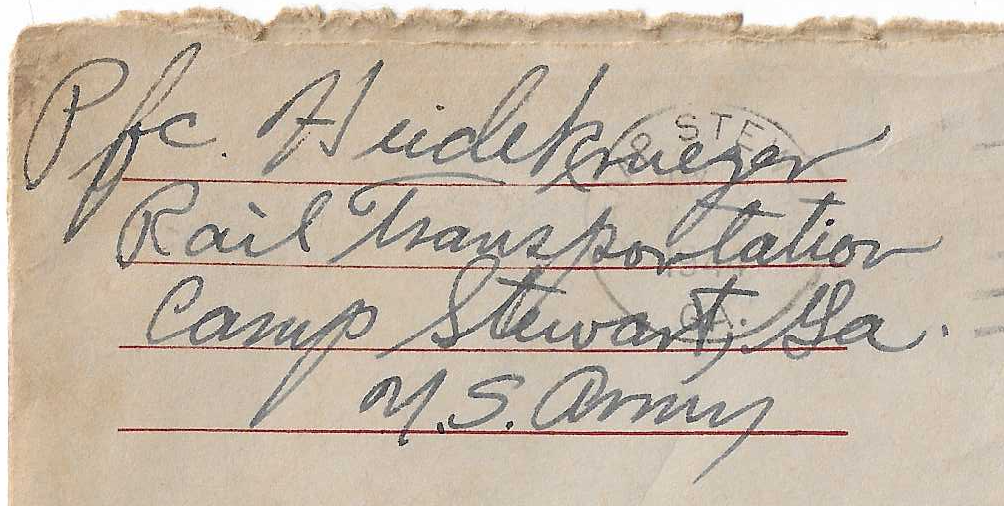 Pfc. Heidekrueger
Rail Transportation
Camp Stewart, Ga.
U.S. Army
& STEW
GA.